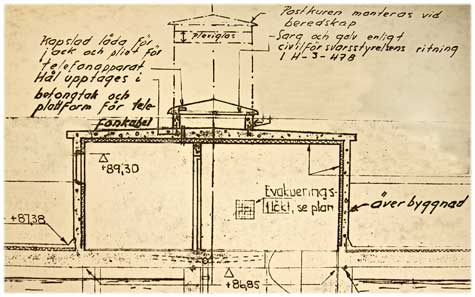 Postkuren monteras vid
beredskap
plexiglas
Sarg och galv enligt
civilförsvarsstyrelsens ritning
1 H-3-478
Kapslad låda för
jack och plint för
telefonapparat
Hål upptages i
betongtak och
plattform för tele
fonkabel
+89,30
Evakuerings-
se plan
överbyggnad
+87,38
+86,85